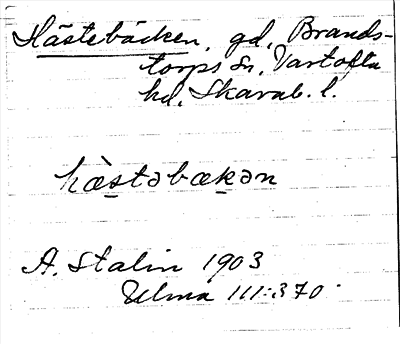 Hästebäcken, gd, Brands-
torps sn, Vartofta
hd, Skarab. l.
hæ̀stəbækən
A. Stalin 1903
Ulma 111:370